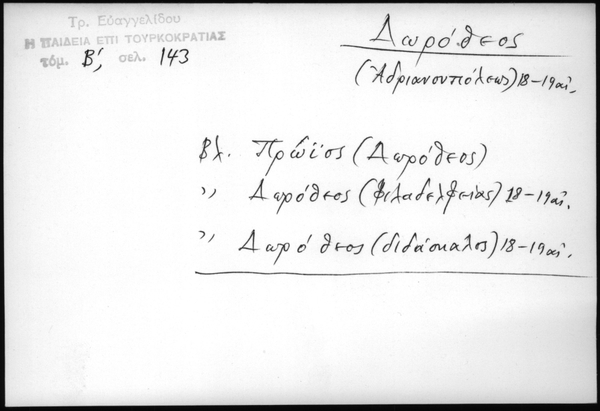 Τρ. Εὐαγγελίδου
Η ΠΑΙΔΕΙΑ ΕΠΙ ΤΟΥΡΚΟΚΡΑΤΙΑΣ
τόμ. Β', σελ. 143
Δωρόθεος
(Ἀδριανουπόλεως) 18-19 αἰ.
Βλ. Πρώϊος (Δωρόθεος)
" Δωρόθεος (Φιλαδελφείας) 18-19 αἰ.
" Δωρόθεος (διδάσκαλος) 18-19 αἰ.